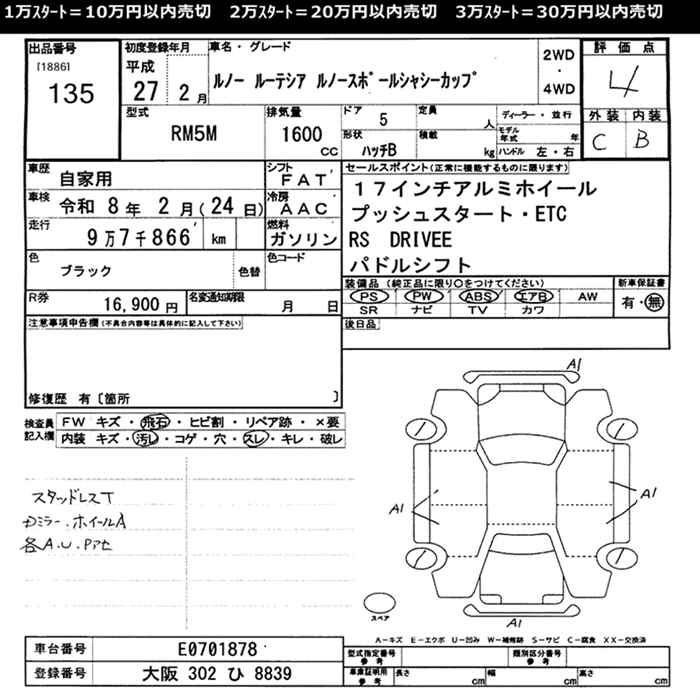 1万ｽﾀｰﾄ＝10万円以内売切　2万ｽﾀｰﾄ＝20万円以内売切　3万ｽﾀｰﾄ＝30万円以内売切
出品番号
[1886]
135
初度登録年月
平成
27 2月
車名・グレード
ルノー ルーテシア ルノースポールシャシーカップ
2WD
・
4WD
評価点
4
型式
RM5M
排気量
1600
cc
ドア
5
定員
人
ディーラー・並行
形状
ハッチB
積載
kg
モデル年式
年
ハンドル 左・右
外装 内装
C B
車歴
自家用
シフト
FAT
車検
令和 8年 2月(24日)
冷房
AAC
走行
9万7千866 km
燃料
ガソリン
色
ブラック
色替
色コード
R券
16,900円
名変通知期限
月 日
セールスポイント(正常に機能するものに限ります)
17インチアルミホイール
プッシュスタート・ETC
RS DRIVEE
パドルシフト
装備品(純正品に限り○をつけてください)
PS PW ABS エアB AW
SR ナビ TV カワ
新車保証書
有・無
後日品
注意事項申告欄(不具合内容等は具体的に記入して下さい)
修復歴 有〔箇所 〕
検査員記入欄
FW キズ・飛石・ヒビ割・リペア跡・×要
内装 キズ・汚れ・コゲ・穴・スレ・キレ・破レ
スタッドレスT
ドミラー・ホイールA
各A.U.Pアセ
A1
A1
A1
A1
スペア
A－キズ E－エクボ U－凹み W－補修跡 S－サビ C－腐食 XX－交換済
車台番号
E0701878
登録番号
大阪 302 ひ 8839
型式指定番号
参考
類別区分番号
参考
車庫証明用
参考
長さ cm
幅 cm
高さ cm